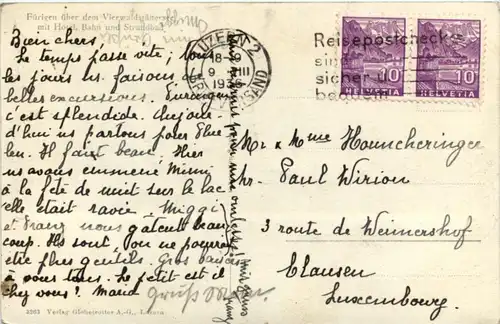 Fürigen über dem Vierwaldstättersee
mit Hotel, Bahn und Strandbad
Bien chers,
Le temps passe vite; tous
les jours ns. faisons de
belles excursions. Furigen
c'est splendide. Aujour-
d'hui ns partons pour Flue-
len. Il fait beau. Hier
ns avons emmené Mimi
à la fête de nuit sur le lac
elle était ravie. Miggi
et Franz nous gâtent beau-
coup. Ils sont, on ne pourrait
être plus gentils. Gros baisers
à vous tous. Le petit est il
chez vous? Maud
Gruss
4263 Verlag Globetrotter A.-G., Luzern
LUZERN 2
18-9
9. VIII
19
Reisepostchecks
sind
sicher u.
bequem
10 10
HELVETIA HELVETIA
Mr & Mme Hounscheringer
Mr. Paul Wirion
3 route de Weimershof
Clausen
Luxembourg.